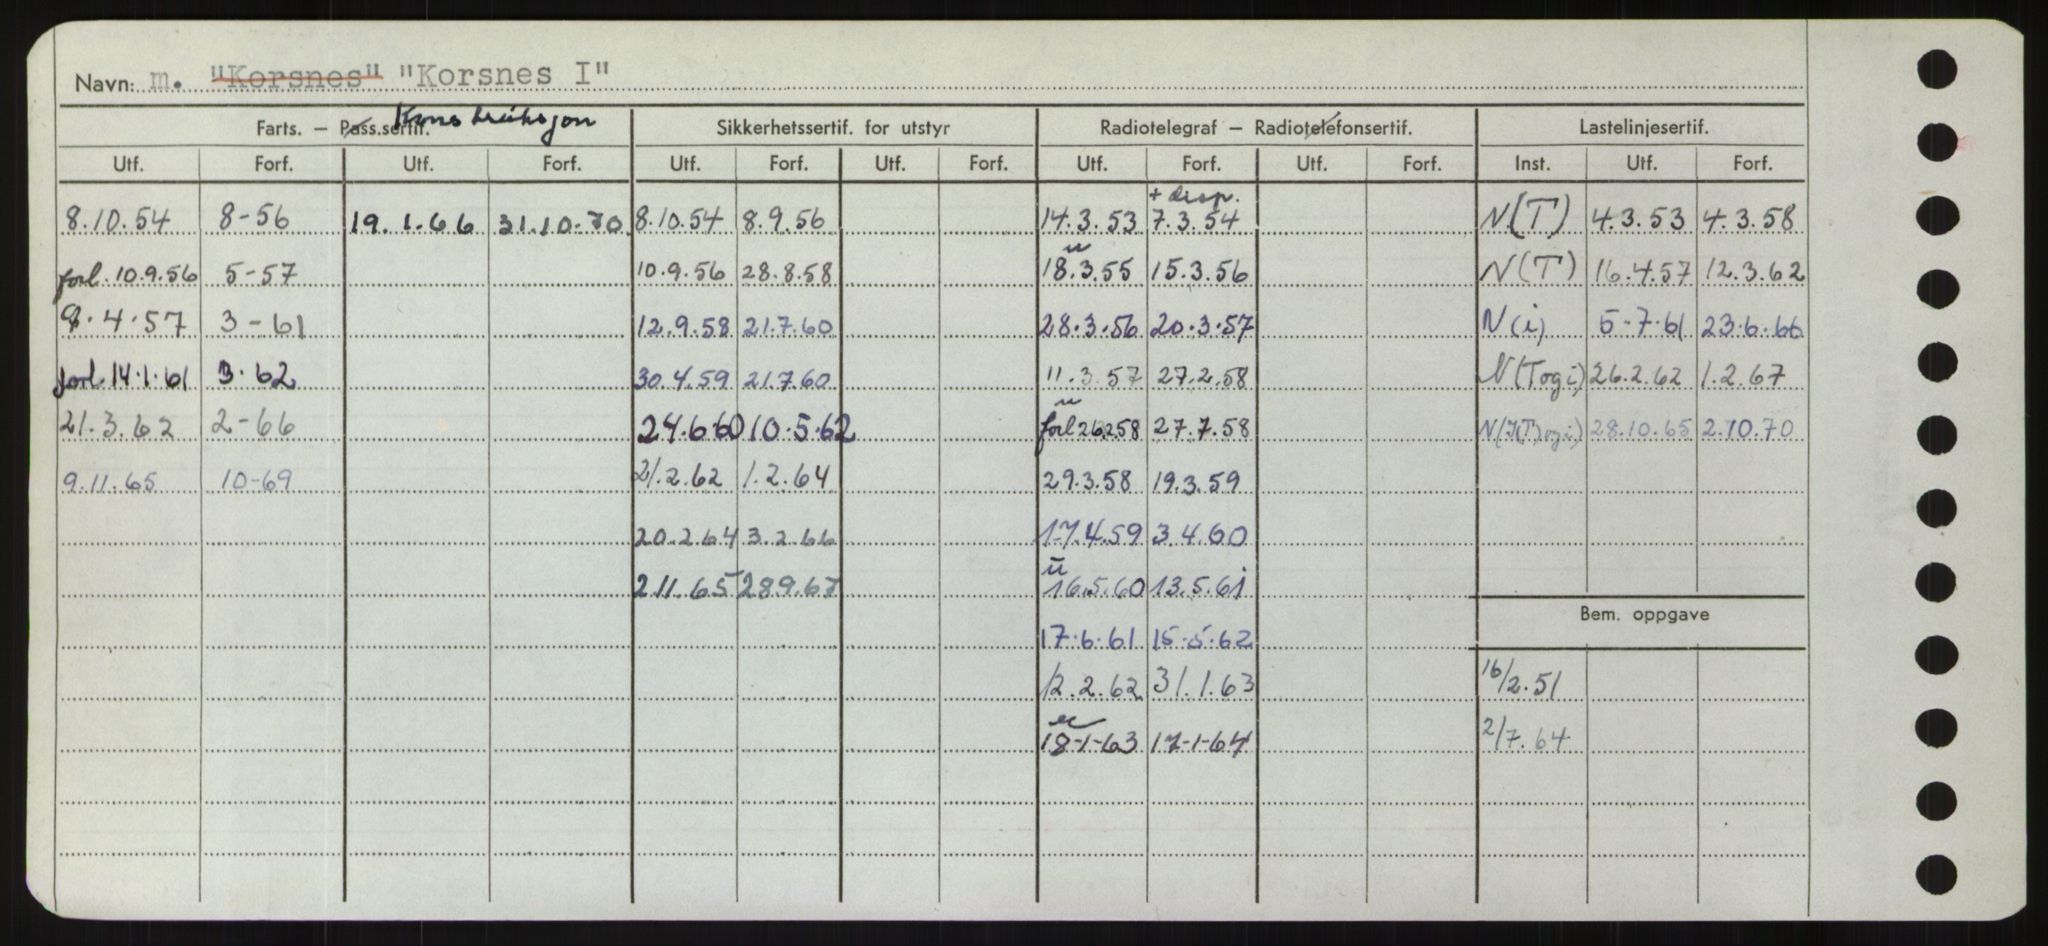 Navn: m. "Korsnes" "Korsnes I"
Farts. – Pass.sertif. Konstruksjon Sikkerhetssertif. for utstyr Radiotelegraf – Radiotelefonsertif. Lastelinjesertif.
Utf. Forf. Utf. Forf. Utf. Forf. Utf. Forf. Utf. Forf. Utf. Forf. Inst. Utf. Forf.
+ disp.
8.10.54 8-56 19.1.66 31.10.70 8.10.54 8.9.56 14.3.53 7.3.54 N(T) 4.3.53 4.3.58
forl. 10.9.56 5-57 10.9.56 28.8.58 18.3.55 15.3.56 N(T) 16.4.57 12.3.62
9.4.57 3-61 12.9.58 21.7.60 28.3.56 20.3.57 N(i) 5-7-61 23.6.66
forl. 14.1.61 3.62 30.4.59 21.7.60 11.3.57 27.2.58 N(Togi) 26.2.62 1.2.67
21.3.62 2-66 24.6.60 10.5.62 forl 26.2.58 27.7.58 28.10.65 2.10.70
9.11.65 10-69 21.2.62 1.2.64 29.3.58 19.3.59
20.2.64 3.2.66 17.4.59 3.4.60
2.11.65 28.9.67 16.5.60 13.5.61
Bem. oppgave
17.6.61 15-5-62
12.2.62 31.1.63 16/2.51
18-1-63 17-1-64 2/7.64